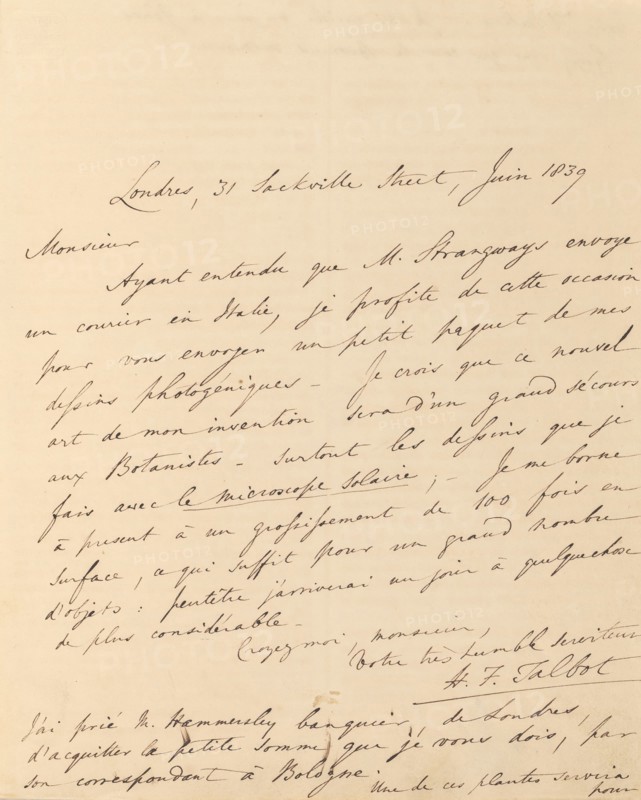 Londres, 31 Sackville Street, Juin 1839
Monsieur
Ayant entendu que M. Strangways envoye
un courier en Italie, je profite de cette occasion
pour vous envoyer un petit paquet de mes
dessins photogéniques - Je crois que ce nouvel
art de mon invention sera d'un grand sécours
aux Botanistes - surtout les dessins que je
fais avec le microscope solaire ; - Je me borne
à présent à un grossissement de 100 fois en
surface, ce qui suffit pour un grand nombre
d'objets : peutêtre j'arriverai un jour à quelquechose
de plus considérable -
Croyez moi, monsieur,
Votre très humble serviteur
H. F. Talbot
J'ai prié M. Hammersley banquier de Londres,
d'acquitter la petite somme que je vous dois, par
son correspondant à Bologne.
Une de ces plantes servira
pour
PHOTO12